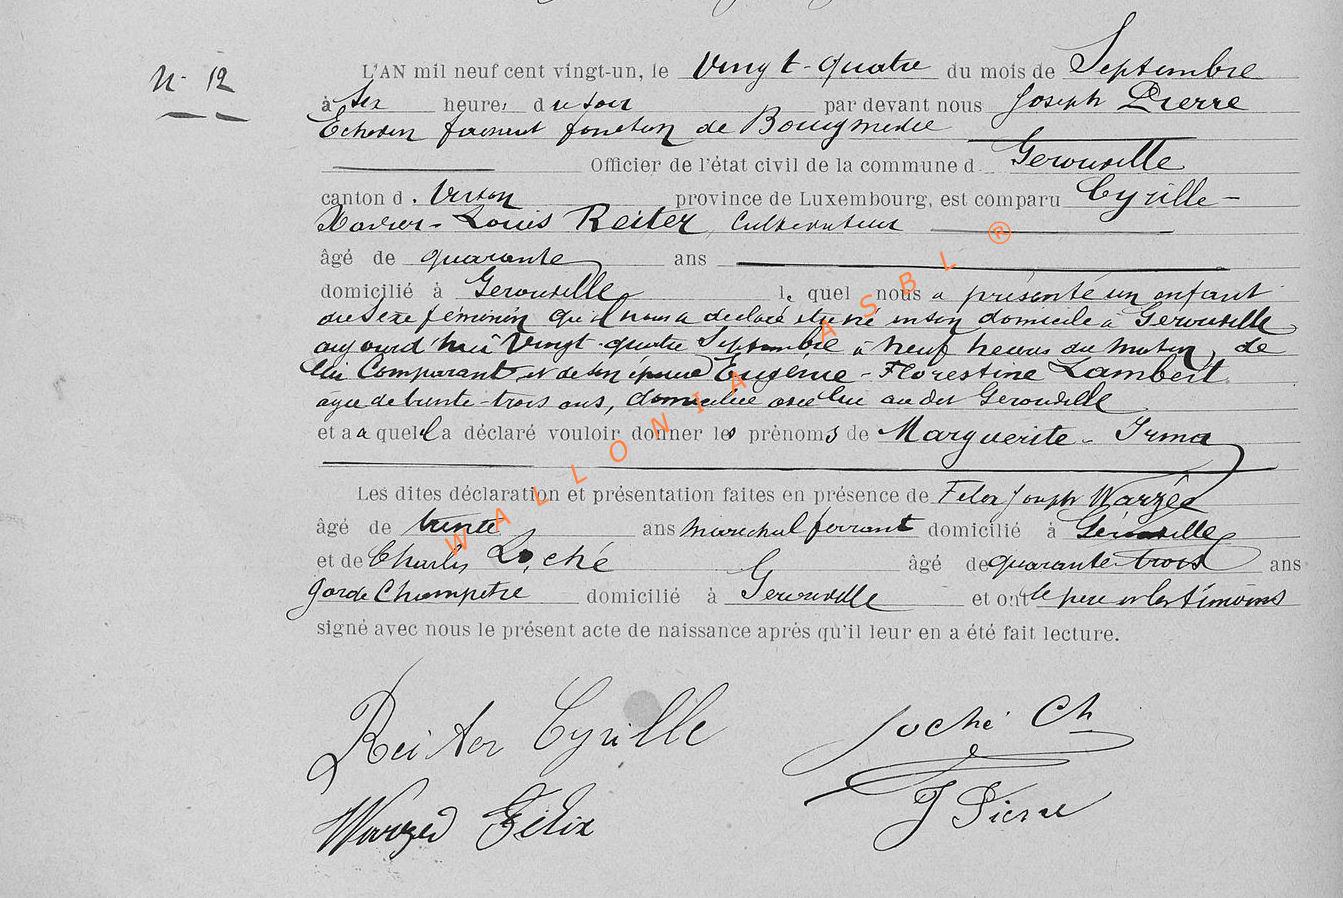 N° 12
L'AN mil neuf cent vingt-un, le Vingt-quatre du mois de Septembre
à six heures du soir par devant nous Joseph Pierre
Echevin faisant fonction de Bourgmestre
Officier de l'état civil de la commune d. Gérouville
canton d. Virton province de Luxembourg, est comparu Cyrille-
Xavier-Louis Reiter, Cultivateur
âgé de quarante ans
domicilié à Gerouville le quel nous a présenté un enfant
du sexe féminin qu'il nous a déclaré être né en son domicile à Gerouville
aujourd'hui Vingt-quatre Septembre à neuf heures du matin, de
lui Comparant et de son épouse Eugénie-Florestine Lambert
agée de trente-trois ans, domiciliée avec lui au dit Gerouville
et a quel il a déclaré vouloir donner les prénoms de Marguerite-Irma
Les dites déclaration et présentation faites en présence de Félix Joseph Warzée
âgé de trente ans maréchal ferrant domicilié à Gérouville
et de Charles Loché âgé de quarante-trois ans
garde Champêtre domicilié à Gérouville et ont le père et les témoins
signé avec nous le présent acte de naissance après qu'il leur en a été fait lecture.
Reiter Cyrille
Loché Ch
Warzée Félix
J Pierre
WALLONIA ASBL ®